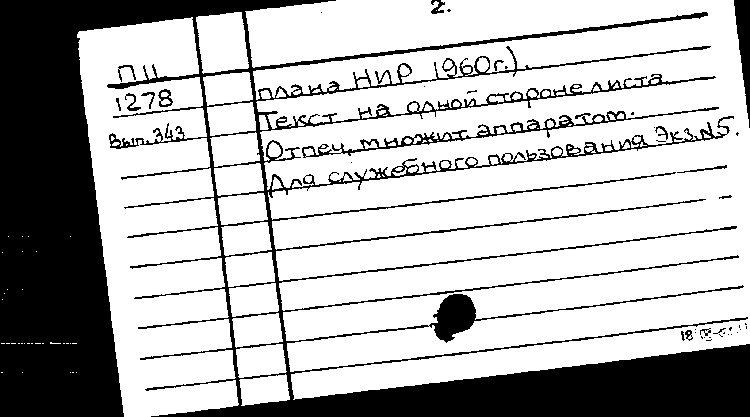 2.
П 11
1278
Вып. 343
плана НИР 1960г.).
Текст на одной стороне листа.
Отпеч. множит. аппаратом.
Для служебного пользования Экз.N5.